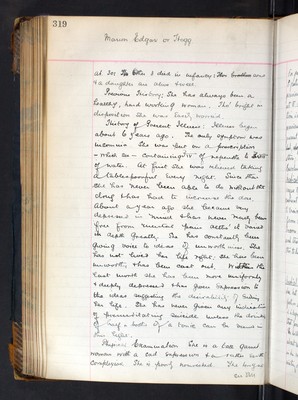 319
Marion Edgar or Hogg
at 30: The other 2 died in infancy: Her brothers and
& a daughter are alive & well.
Previous History: She has always been a
healthy, hard working woman. Tho' bright in
disposition she was easily worried.
History of Present Illness: Illness began
about 6 years ago. The only symptom was
insomnia. She was put on a prescription
which containing of
of water. She first began taking
a tablespoonful every night. Since then
she has never been able to do without the
drug & has had to increase the dose.
About a year ago she became very
depressed in mind & has never really been
free from mental pain
in depth greatly. She has constantly been
giving voice to ideas of unworthiness. She
has not lived her life right, she has been
unworthy & has been cast out. Within the
last month she has been more
& deeply depressed & has given expression to
the ideas suggesting the desirability of ending
her life. She has never given any indication
of premeditating suicide unless the drinking
of half a bottle of a tonic can be named in
this light.
Physical Examination She is a
woman with a sad expression & a
complexion. She is poorly nourished. The tongue